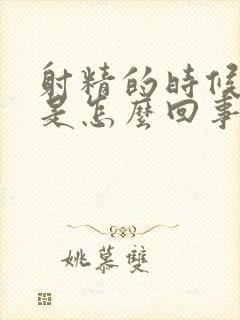 射精的時候
是怎麼回事
姚慕雙